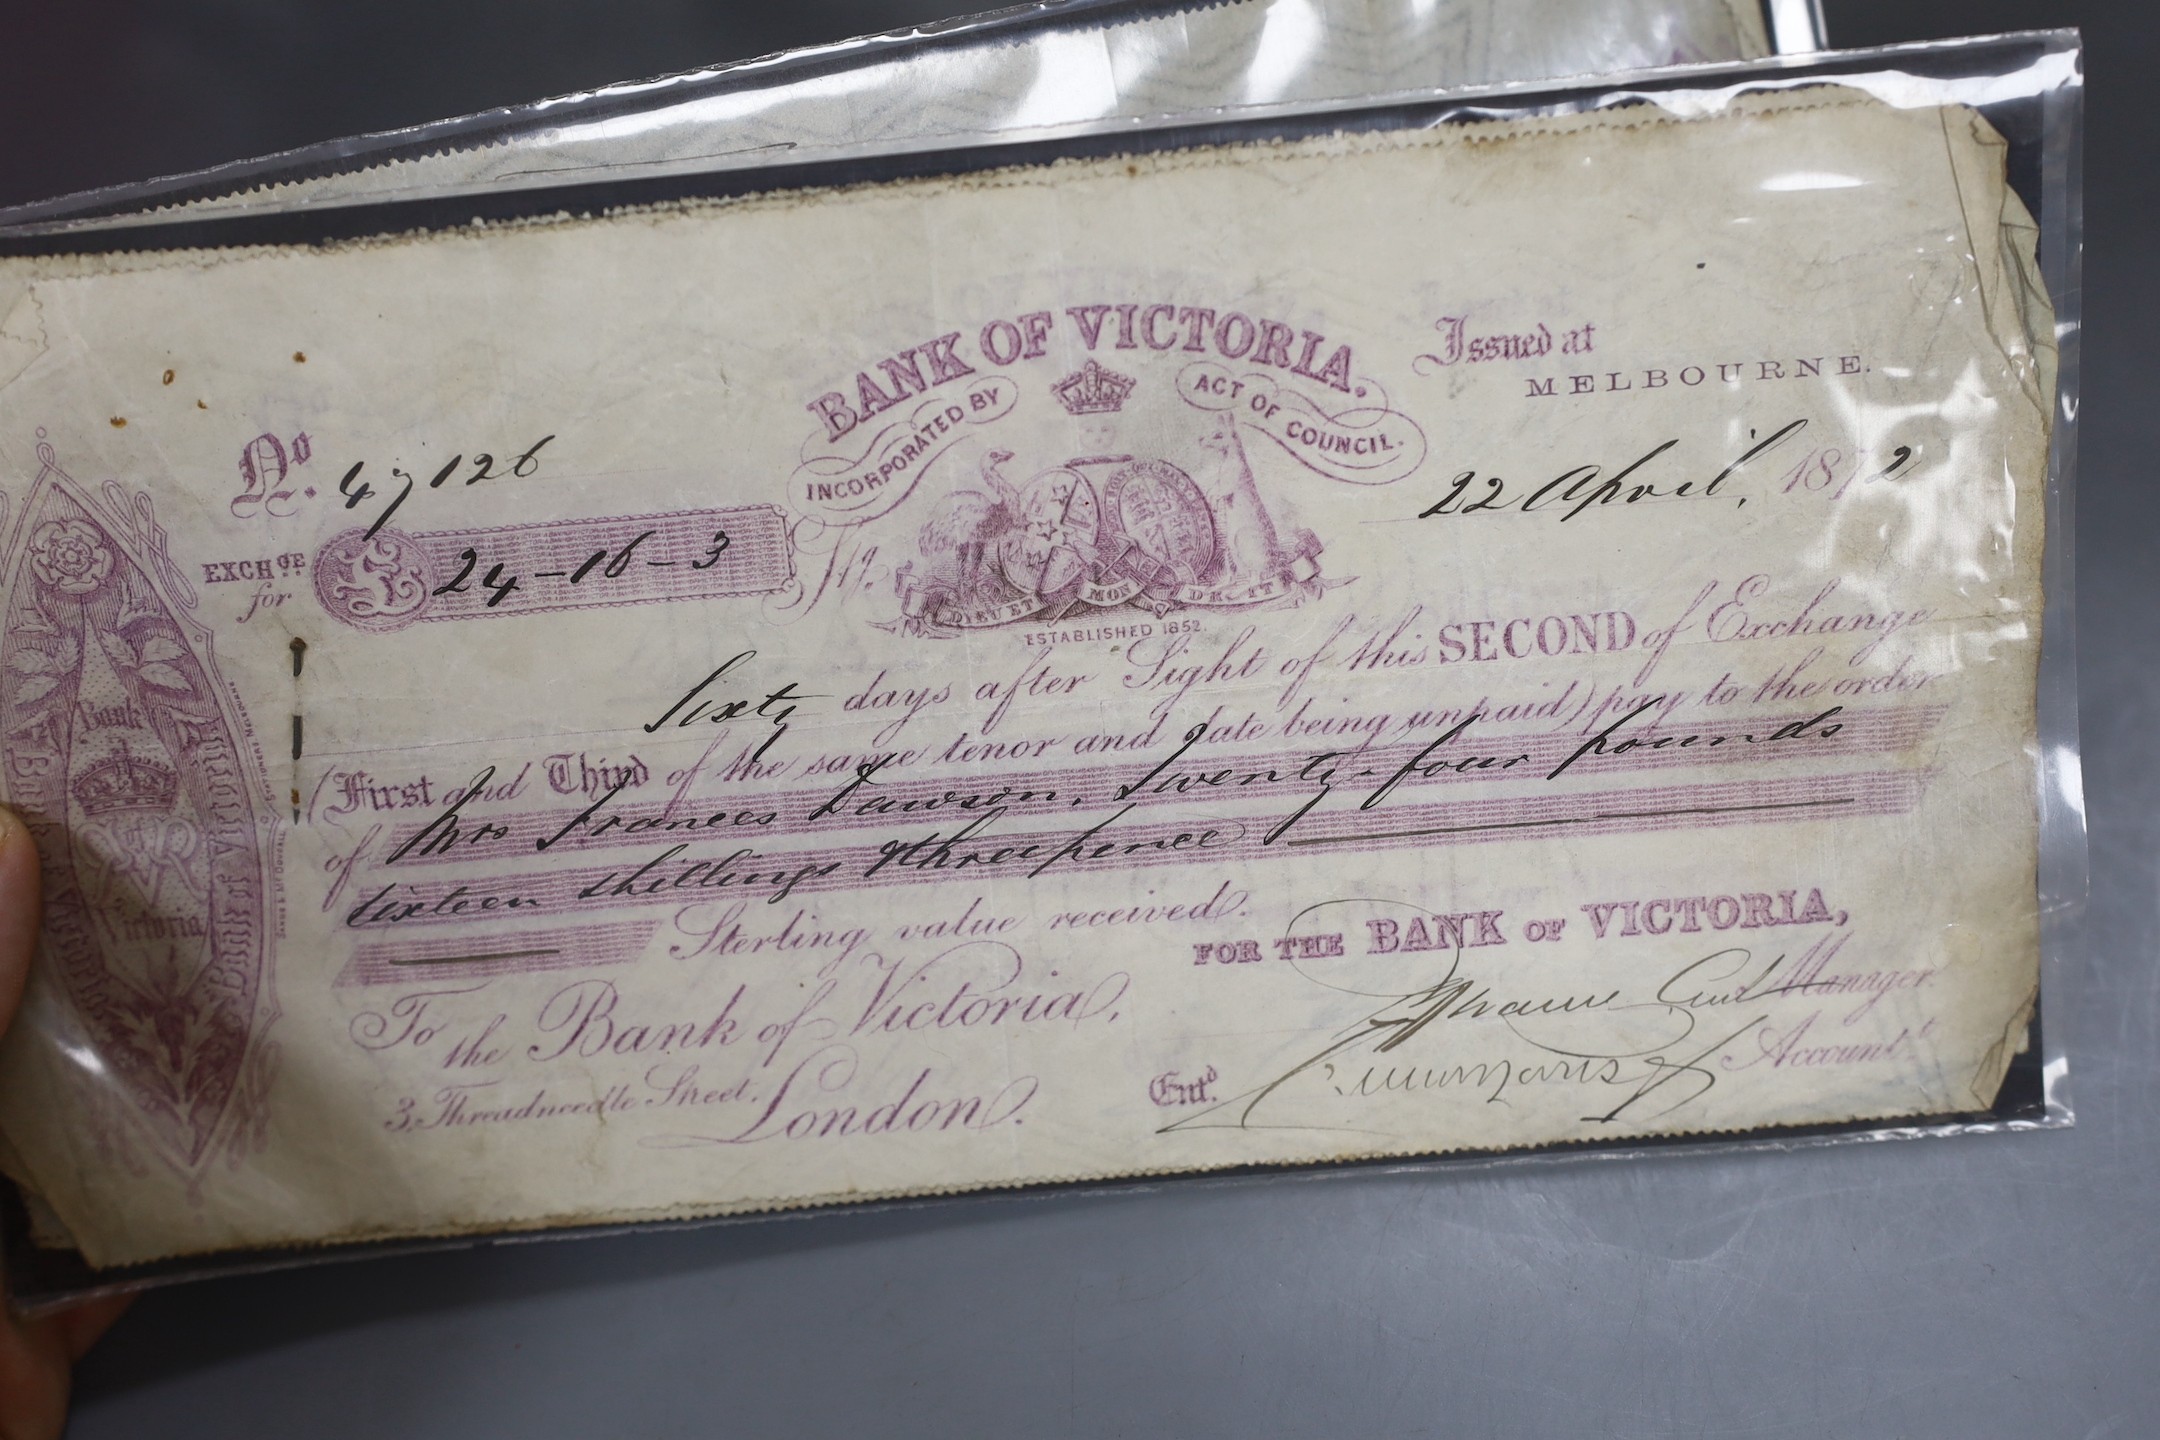 BANK OF VICTORIA.
INCORPORATED BY ACT OF COUNCIL.
Issued at
MELBOURNE.
No. 47126
22 April, 1872
EXCHGE for £ 24-16-3 Stg.
DIEU ET MON DROIT
ESTABLISHED 1852.
Sixty days after Sight of this SECOND of Exchange
(First and Third of the same tenor and date being unpaid) pay to the order
of Mrs Frances Dawson, Twenty-four pounds
sixteen shillings & threepence
Sterling value received.
FOR THE BANK OF VICTORIA,
To the Bank of Victoria,
Manager.
3, Threadneedle Street,
London.
Entd.
Accountt.
Bank
VR
Victoria
Bank of Victoria
Bank of Victoria